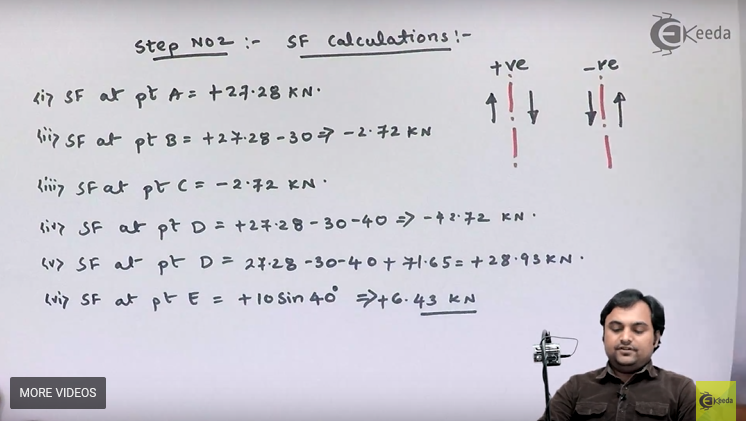 Step NO2 :- SF Calculations:-
EKeeda
+ve -ve
(i) SF at pt A = +27.28 KN.
(ii) SF at pt B = +27.28-30 => -2.72 KN
(iii) SF at pt C = -2.72 KN.
(iv) SF at pt D = +27.28-30-40 => -42.72 KN.
(v) SF at pt D = 27.28-30-40+71.65 = +28.93 KN.
(vi) SF at pt E = +10 Sin 40° => +6.43 KN
MORE VIDEOS
EKeeda